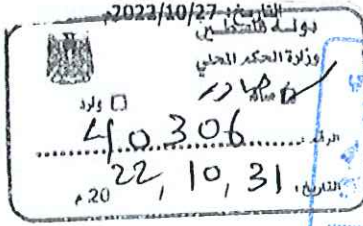 التاريخ: 2022/10/27م
دولة فلسطين
وزارة الحكم المحلي
صادر ☐ وارد
الرقم: 40306
التاريخ: 31, 10, 22 20م